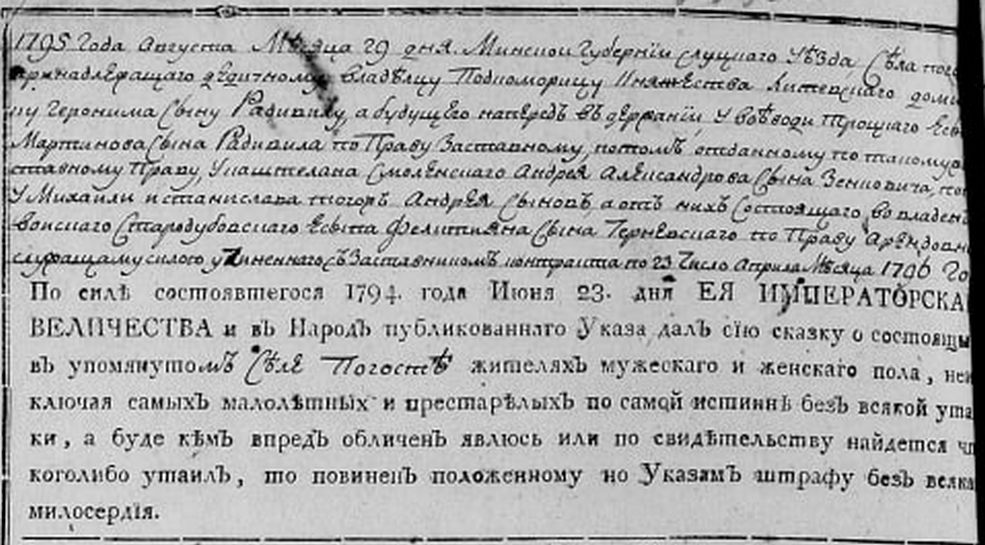 1795 Года Августа Мѣсяца 29 дня. Минской Губернїи слуцкаго Уѣзда, Сѣла
принадлежащаго дедичному владѣлцу Подкоморицу Княжества Литевскаго
Геронима Сыну Радивилу, а будущего напередъ въ держанїи, У воѣводи Троцкаго
Мартинова Сына Радивила по Праву Заставному, потомъ отданному по такому
Праву, Укаштелана Смоленскаго Андрея Александрова Сына Зеновича,
У Михаили и станислава тогожъ Андрея Сыновъ, а отъ нихъ Состоящаго во
Стародубовскаго Есыпа Фелитияна Сына Черневскаго по Праву
служащему силою учиненнаго съ Заставникомъ контракта по 23 Число Априля Мѣсяца 1796
По силѣ состоявшегося 1794. года Июня 23. дня ЕЯ ИМПЕРАТОРСКА
ВЕЛИЧЕСТВА и въ Народъ публикованнаго Указа далъ сїю сказку о состоящи
въ упомянутомъ Сѣле Погостѣ жителяхъ мужескаго и женскаго пола, неи
ключая самыхъ малолѣтныхъ и престарѣлыхъ по самой истиннѣ безъ всякой ута
ки, а буде кѣмъ впредъ обличенъ явлюсь или по свидѣтельству найдется
коголибо утаилъ, то повиненъ положенному по Указамъ штрафу безъ всяка
милосердїя.